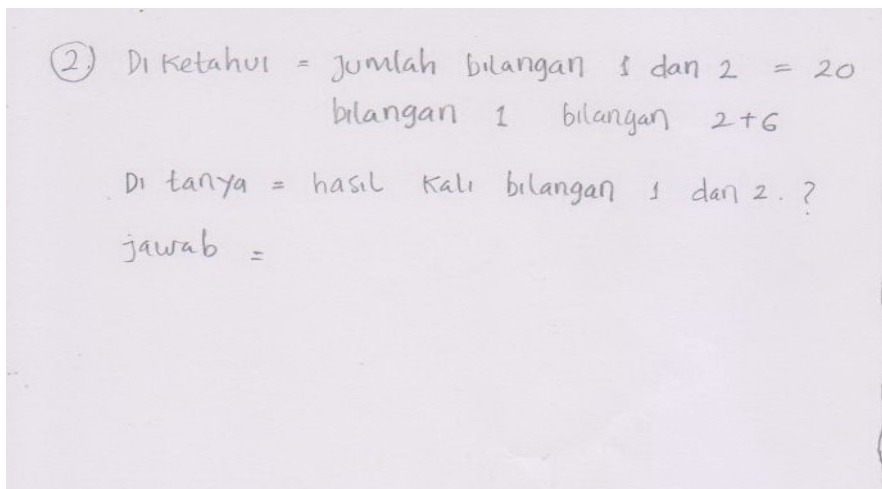 2. Diketahui = Jumlah bilangan 1 dan 2 = 20
bilangan 1 bilangan 2+6
Di tanya = hasil kali bilangan 1 dan 2. ?
jawab =